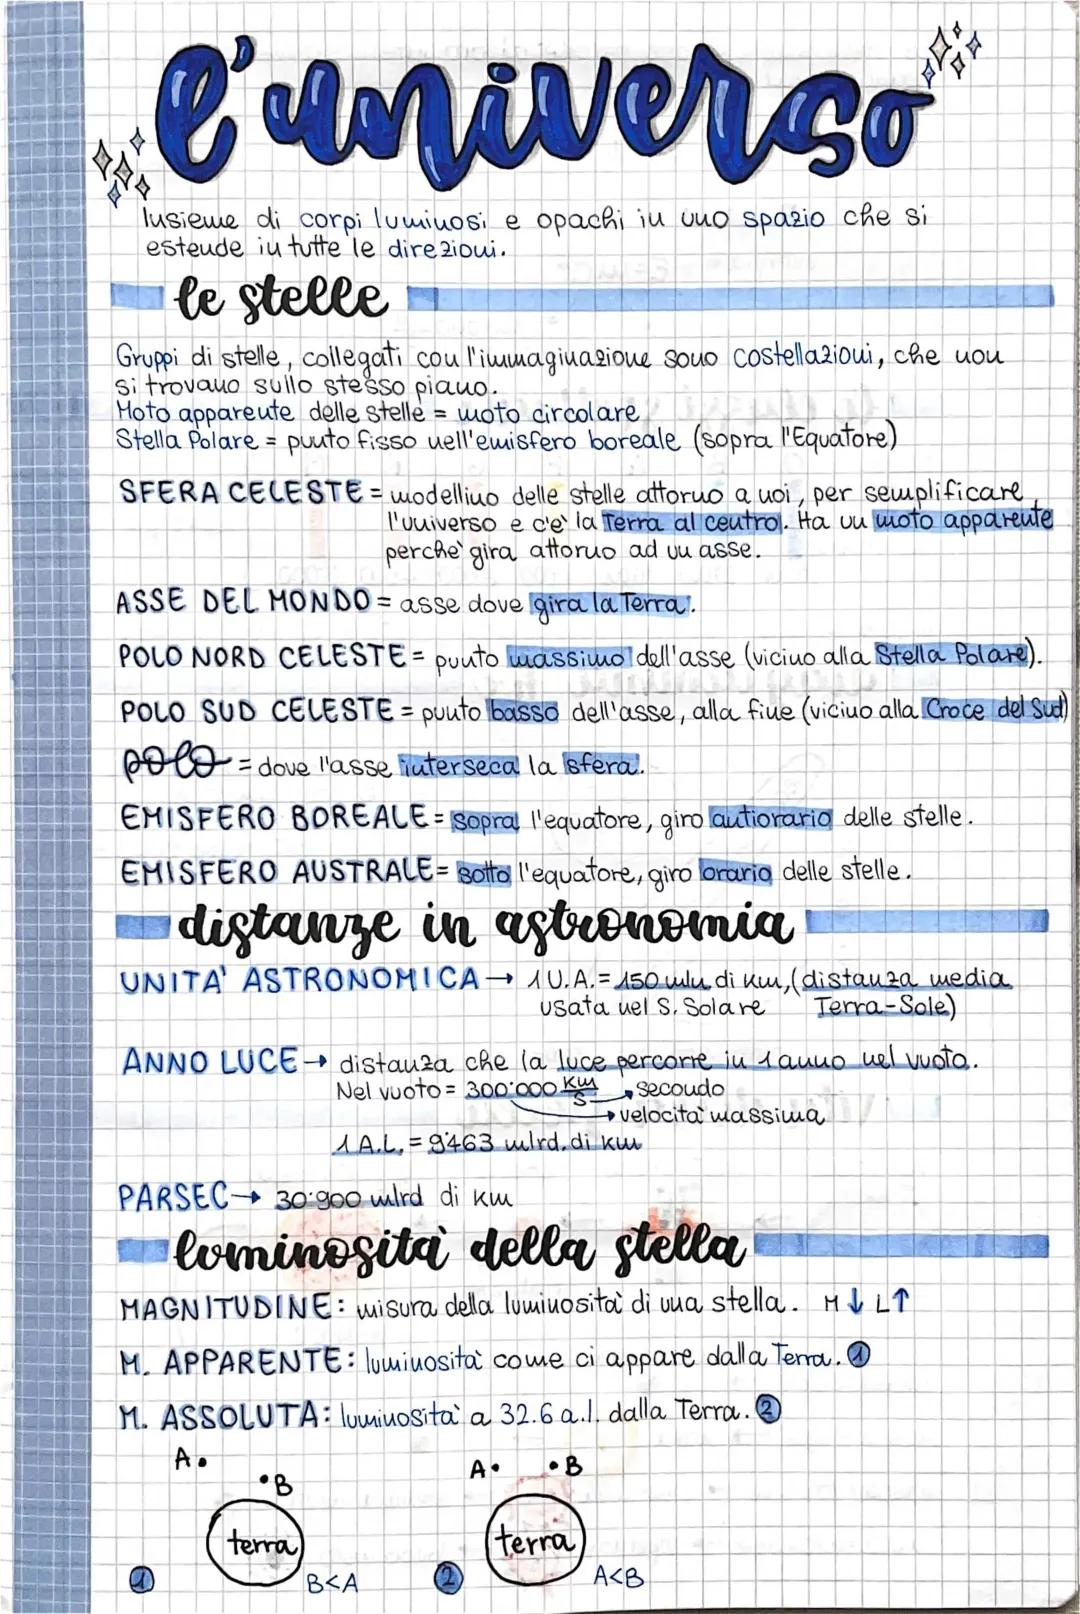 l'universo
Insieme di corpi luminosi e opachi in uno spazio che si
estende in tutte le direzioni.
le stelle
Gruppi di stelle, collegati con l'immaginazione sono costellazioni, che non
si trovano sullo stesso piano.
Moto apparente delle stelle = moto circolare
Stella Polare = punto fisso nell'emisfero boreale (sopra l'Equatore)
SFERA CELESTE = modellino delle stelle attorno a noi, per semplificare
l'universo e c'è la Terra al centro. Ha un moto apparente
perchè gira attorno ad un asse.
ASSE DEL MONDO = asse dove gira la Terra.
POLO NORD CELESTE = punto massimo dell'asse (vicino alla Stella Polare).
POLO SUD CELESTE = punto basso dell'asse, alla fine (vicino alla Croce del Sud)
polo = dove l'asse interseca la sfera.
EMISFERO BOREALE = sopra l'equatore, giro antiorario delle stelle.
EMISFERO AUSTRALE = sotto l'equatore, giro orario delle stelle.
distanze in astronomia
UNITA' ASTRONOMICA → 1 U.A. = 150 mln di km, (distanza media
usata nel S. Solare Terra-Sole)
ANNO LUCE → distanza che la luce percorre in 1 anno nel vuoto.
Nel vuoto = 300'000 km/s → secondo
→ velocità massima
1 A.L. = 9'463 mlrd. di km
PARSEC → 30'900 mlrd di km
luminosità della stella
MAGNITUDINE: misura della luminosità di una stella. M↓ L↑
M. APPARENTE: luminosità come ci appare dalla Terra. 1
M. ASSOLUTA: luminosità a 32.6 a.l. dalla Terra. 2
A. .B A. .B
terra terra
1 B<A 2 A<B